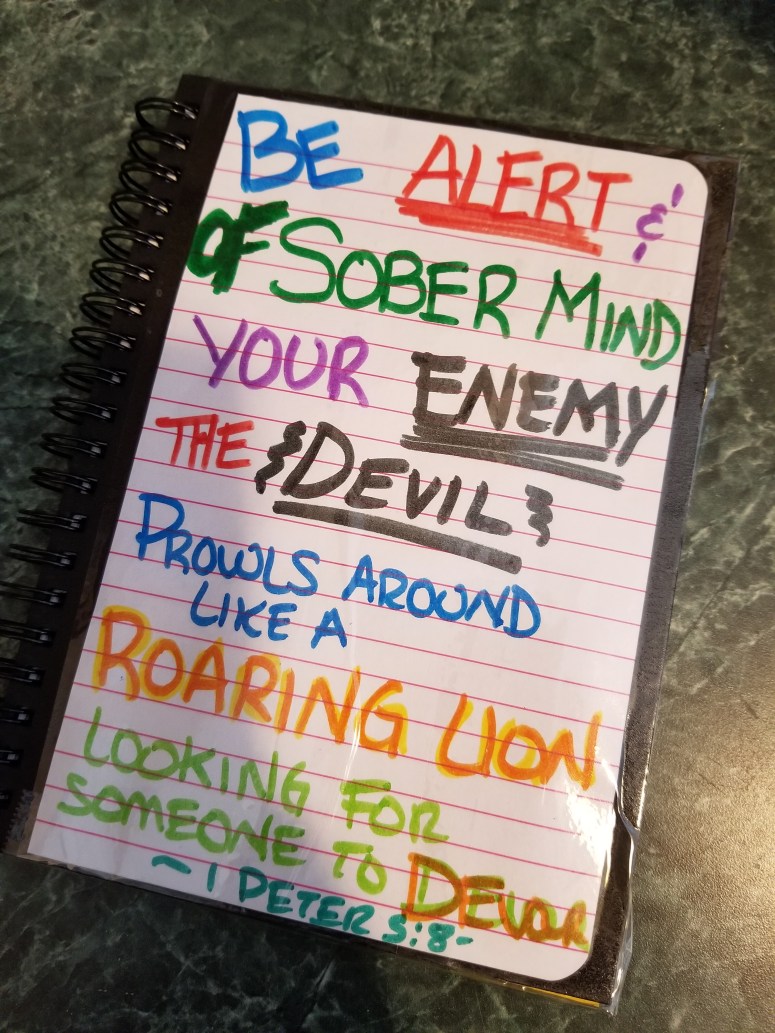 BE ALERT &
OF SOBER MIND
YOUR ENEMY
THE DEVIL
PROWLS AROUND
LIKE A
ROARING LION
LOOKING FOR
SOMEONE TO DEVOUR
~ 1 PETER 5:8-